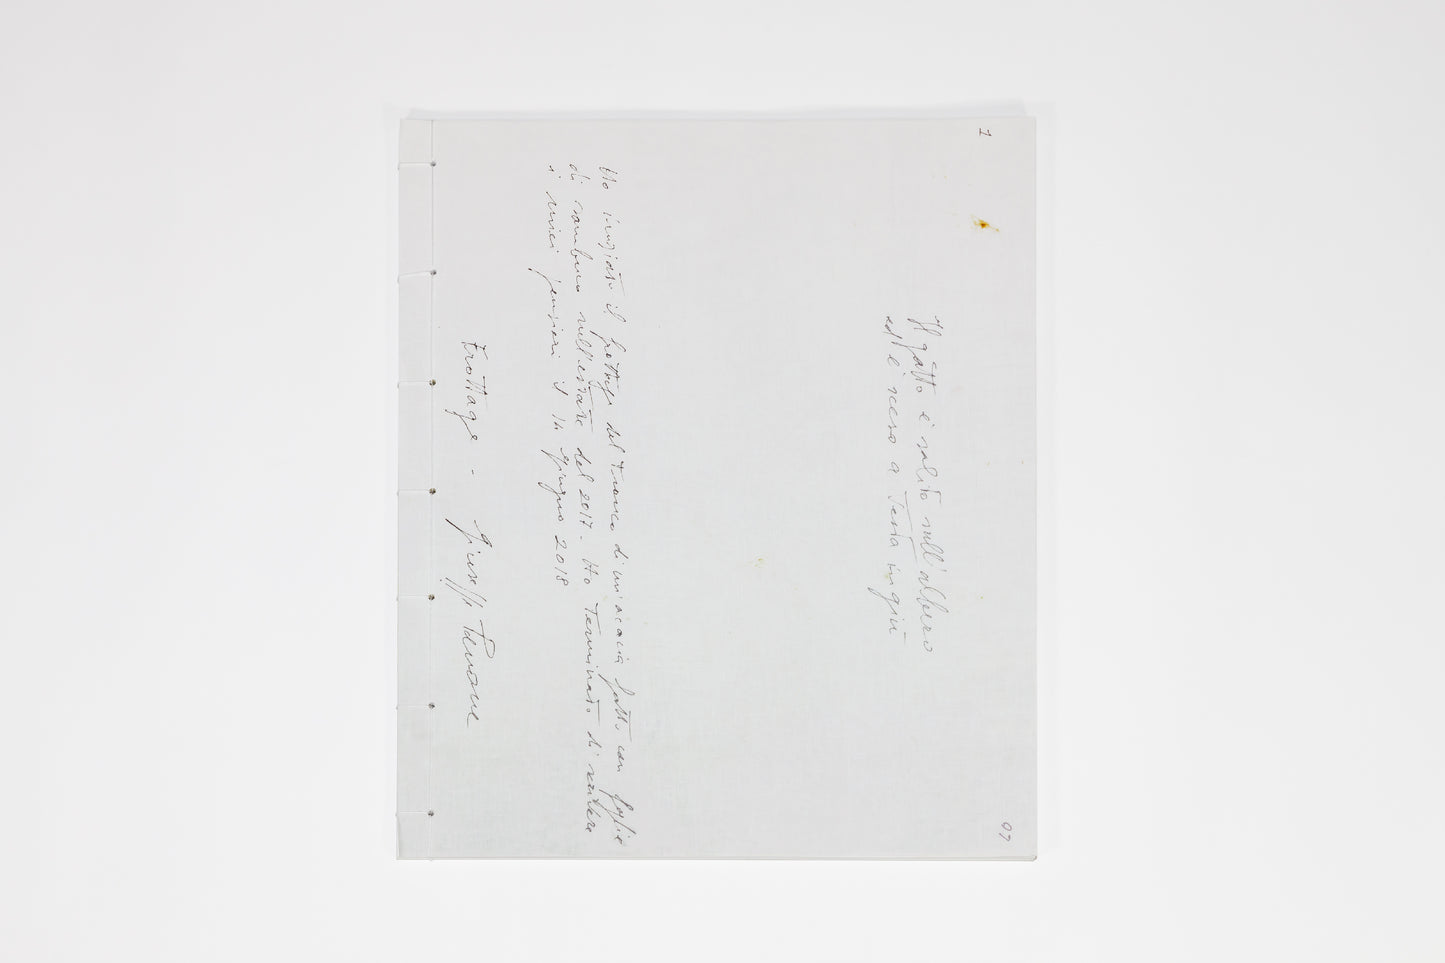 1
97
Il gatto è salito sull'albero
ed è sceso a testa in giù
Ho iniziato il frottage del tronco di un'acacia fatto con foglie
di sambuco nell'estate del 2017 - Ho terminato di scrivere
i miei pensieri il 14 giugno 2018
Frottage - Giuseppe Penone